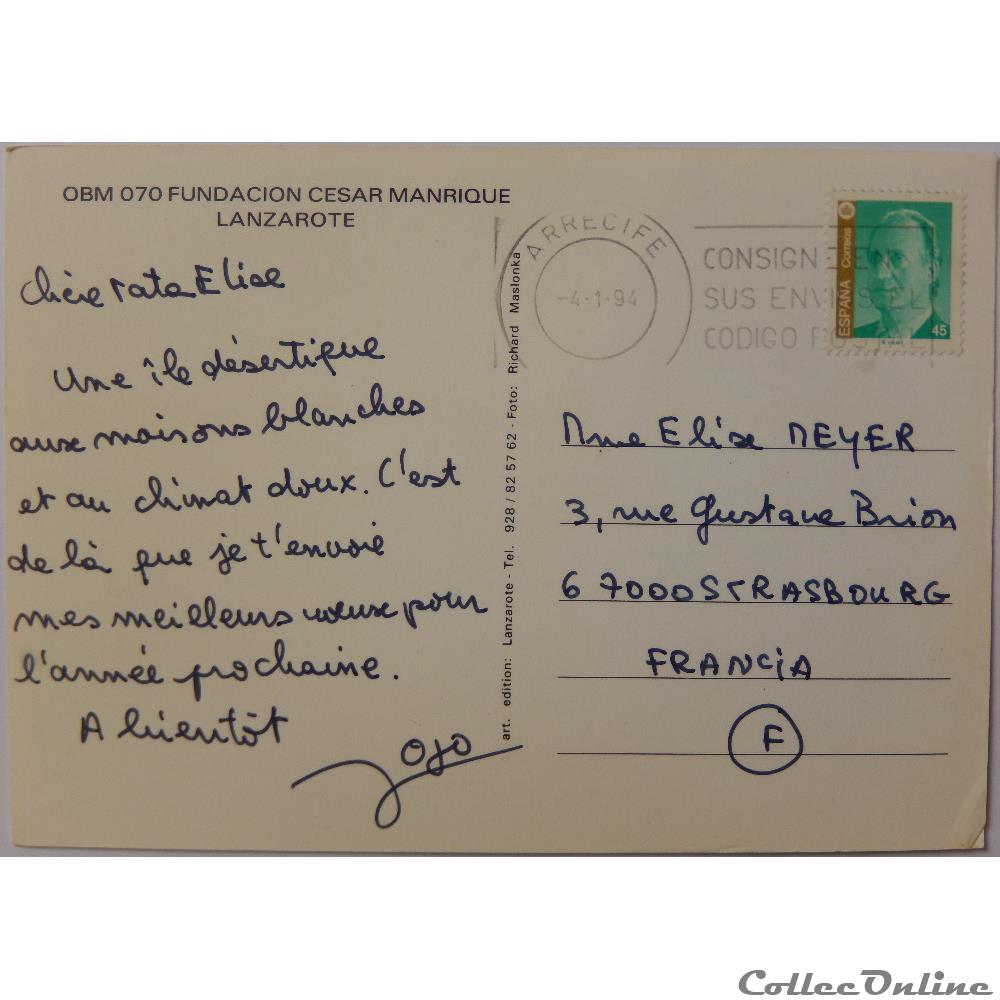 OBM 070 FUNDACION CESAR MANRIQUE
LANZAROTE
Chère Tata Elise
Une île désertique
aux maisons blanches
et au climat doux. C'est
de là que je t'envoie
mes meilleurs vœux pour
l'année prochaine.
A bientôt
Jojo
art. edition: Lanzarote - Tel. 928 / 82 57 62 - Foto: Richard Maslonka
ARRECIFE
-4-1-94
CONSIGNE EN
SUS ENVIOS EL
CODIGO POSTAL
ESPAÑA Correos
45
Mme Elise MEYER
3, rue Gustave Brion
67000 STRASBOURG
FRANCIA
F
CollecOnline